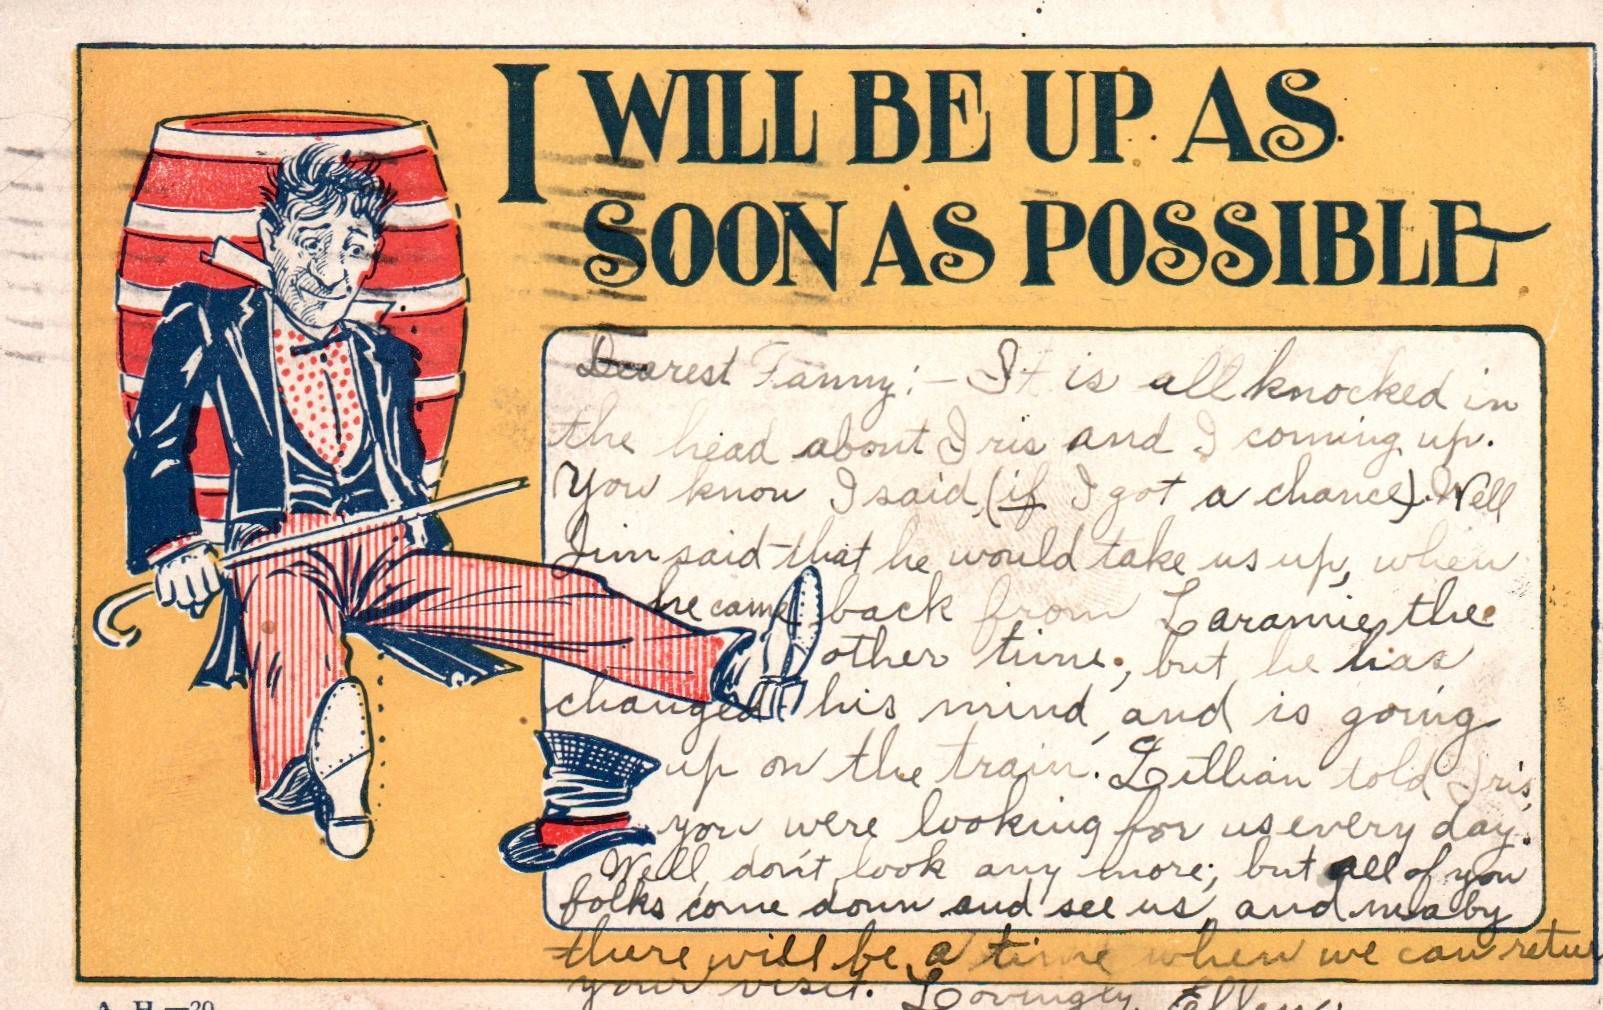 I WILL BE UP AS
SOON AS POSSIBLE
Dearest Fanny:— It is all knocked in
the head about Iris and I coming up.
You know I said, (if I got a chance). Well
Jim said that he would take us up, when
he came back from Laramie, the
other time, but he has
changed his mind, and is going
up on the train. Lillian told Iris,
you were looking for us every day.
Well, don't look any more; but all of you
folks come down and see us, and maby
there will be a time when we can retur
your visit. Lovingly, Ellen.
A. H.—20